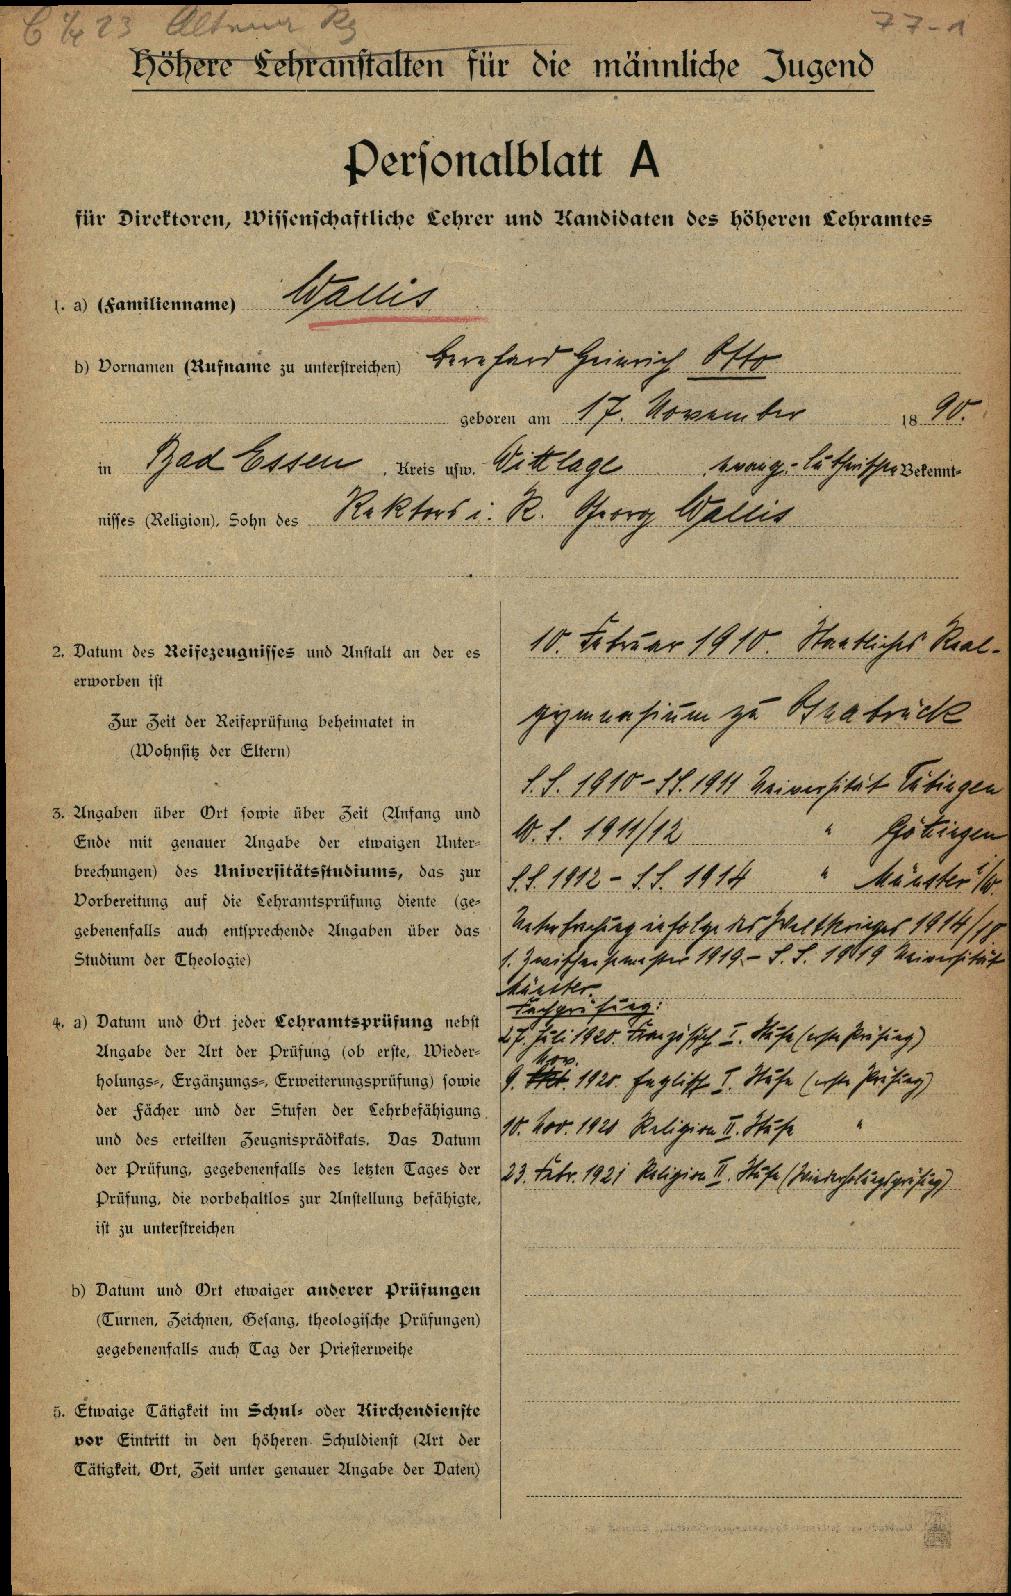 77-1
Höhere Lehranstalten für die männliche Jugend
Personalblatt A
für Direktoren, Wissenschaftliche Lehrer und Kandidaten des höheren Lehramtes
1. a) (Familienname) Wallis
b) Vornamen (Rufname zu unterstreichen) Bernhard Heinrich Otto
geboren am 17. November 18 90.
in Bad Essen, Kreis usw. Wittlage evang.-lutherischen Bekennt-
nisses (Religion), Sohn des Rektors i. R. Georg Wallis
2. Datum des Reifezeugnisses und Anstalt an der es
erworben ist
Zur Zeit der Reifeprüfung beheimatet in
(Wohnsitz der Eltern)
10. Februar 1910. Staatliches Real-
gymnasium zu Osnabrück
3. Angaben über Ort sowie über Zeit (Anfang und
Ende mit genauer Angabe der etwaigen Unter-
brechungen) des Universitätsstudiums, das zur
Vorbereitung auf die Lehramtsprüfung diente (ge-
gebenenfalls auch entsprechende Angaben über das
Studium der Theologie)
S.S. 1910 - SS. 1911 Universität Tübingen
W.S. 1911/12 " Göttingen
S.S. 1912 - S.S. 1914 " Münster i/W.
Unterbrechung infolge des Weltkrieges 1914/18.
1. Zwischensemester 1919 - S.S. 1919 Universität
Münster.
4. a) Datum und Ort jeder Lehramtsprüfung nebst
Angabe der Art der Prüfung (ob erste, Wieder-
holungs-, Ergänzungs-, Erweiterungsprüfung) sowie
der Fächer und der Stufen der Lehrbefähigung
und des erteilten Zeugnisprädikats. Das Datum
der Prüfung, gegebenenfalls des letzten Tages der
Prüfung, die vorbehaltlos zur Anstellung befähigte,
ist zu unterstreichen
Fachprüfung:
27. Juli 1920. Französisch I. Stufe (erste Prüfung)
Nov.
9. Okt. 1920. Englisch I. Stufe (erste Prüfung)
10. Nov. 1920 Religion II. Stufe "
23. Febr. 1921 Religion II. Stufe (Wiederholungsprüfung)
b) Datum und Ort etwaiger anderer Prüfungen
(Turnen, Zeichnen, Gesang, theologische Prüfungen)
gegebenenfalls auch Tag der Priesterweihe
5. Etwaige Tätigkeit im Schul- oder Kirchendienste
vor Eintritt in den höheren Schuldienst (Art der
Tätigkeit, Ort, Zeit unter genauer Angabe der Daten)